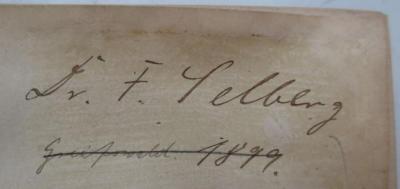 Dr. F. Selberg
Greifswald. 1899.